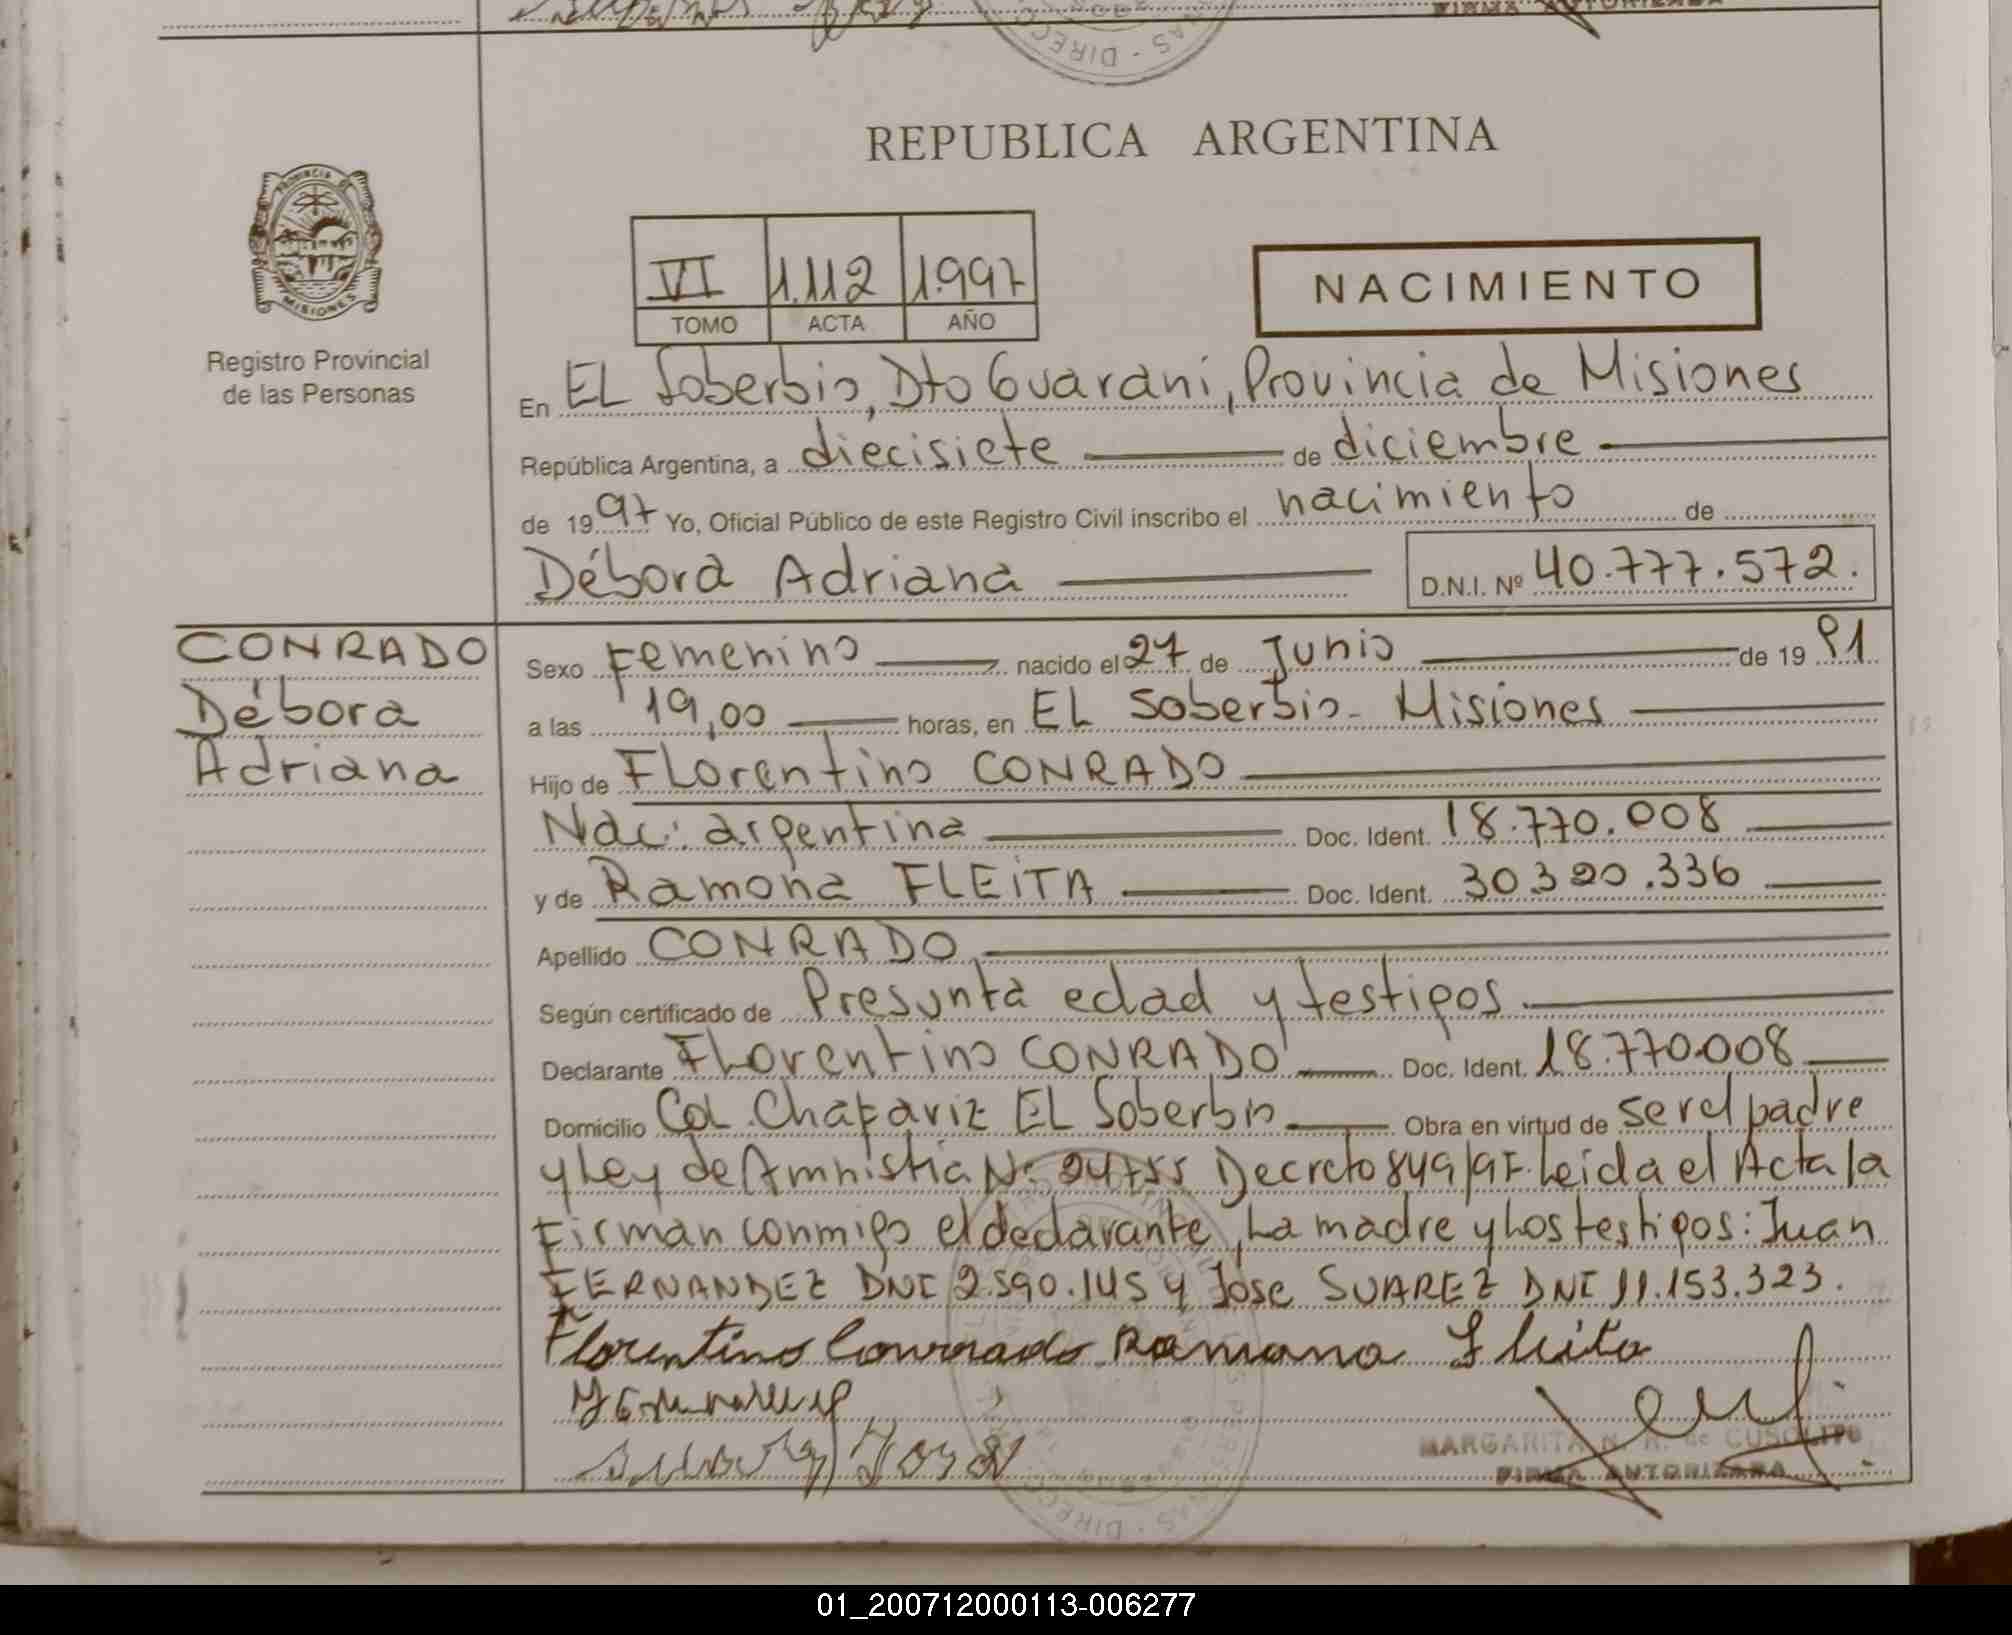 REPUBLICA ARGENTINA
PROVINCIA DE MISIONES
Registro Provincial
de las Personas
VI 1.112 1.997
TOMO ACTA AÑO
NACIMIENTO
En EL Soberbio, Dto Guarani, Provincia de Misiones
República Argentina, a diecisiete de diciembre
de 1997 Yo, Oficial Público de este Registro Civil inscribo el nacimiento de
Débora Adriana D.N.I. Nº 40.777.572.
CONRADO
Débora
Adriana
Sexo Femenino nacido el 27 de Junio de 1991
a las 19,00 horas, en EL Soberbio - Misiones
Hijo de Florentino CONRADO
Nac: argentina Doc. Ident. 18.770.008
y de Ramona FLEITA Doc. Ident. 30.320.336
Apellido CONRADO
Según certificado de Presunta edad y testigos.
Declarante Florentino CONRADO Doc. Ident. 18.770.008
Domicilio Col. Chafariz EL Soberbio Obra en virtud de ser el padre
y Ley de Amnistia Nº 24755 Decreto 849/97. Leida el Acta la
Firman conmigo el declarante, La madre y Los testigos: Juan
FERNANDEZ DNI 2.590.145 y Jose SUAREZ DNI 11.153.323.
Florentino Conrado Ramona Fleita
MARGARITA N. R. de CUSOLITO
FIRMA AUTORIZADA
01_200712000113-006277